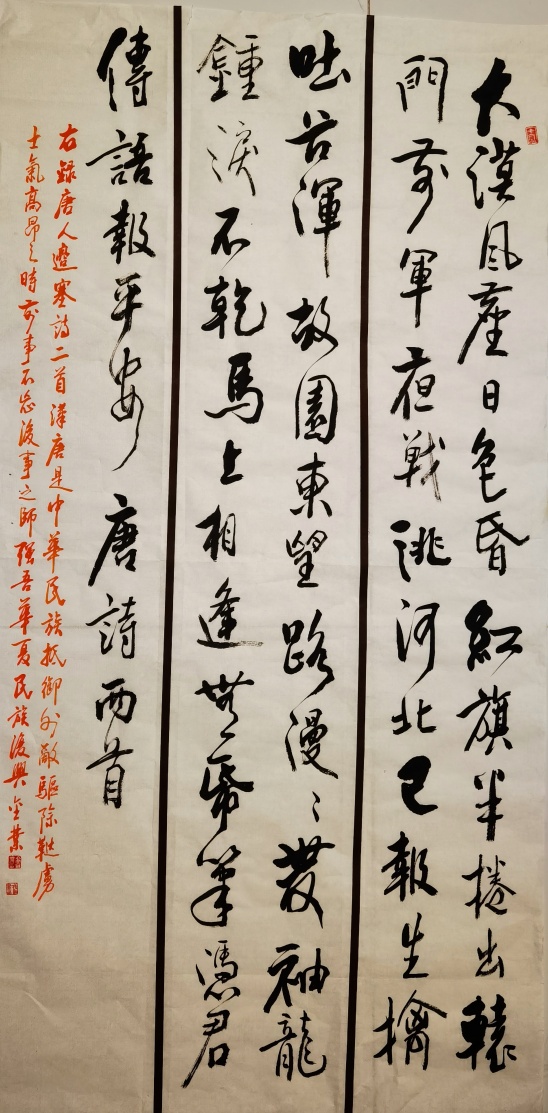 大漠風塵日色昏紅旗半捲出轅
門前軍夜戰洮河北已報生擒
吐谷渾故園東望路漫〻雙袖龍
鍾淚不乾馬上相逢無帋筆憑君
傳語報平安唐詩两首
右録唐人邊塞詩二首漢唐是中華民族抵御外敵驅除韃虜
士氣高昂之時前事不忘後事之師強吾華夏民族復興